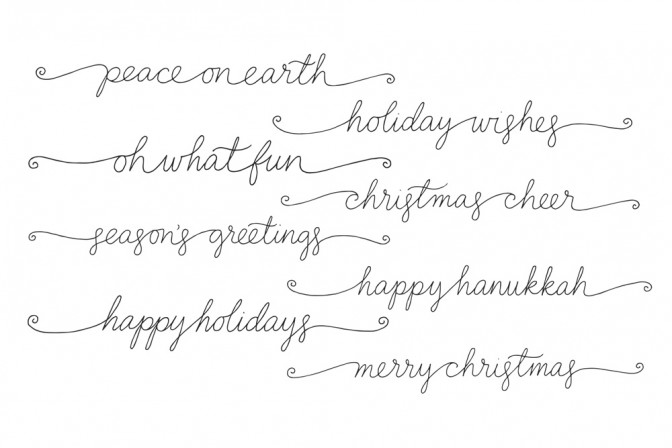 peace on earth
holiday wishes
oh what fun
christmas cheer
season's greetings
happy hanukkah
happy holidays
merry christmas